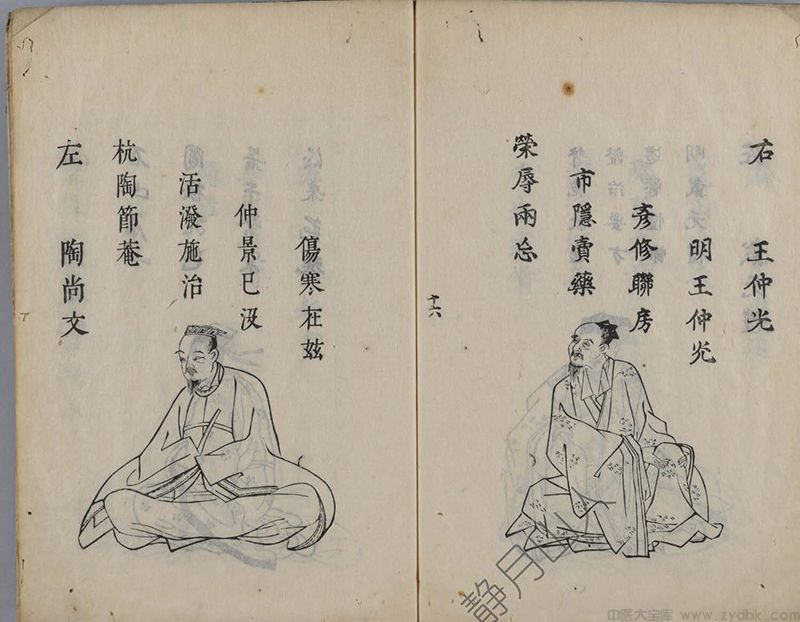 右 王仲光
明王仲灮
彥修聯房
市隱賣藥
榮辱兩忘
十六
左 陶尚文
杭陶節菴
活潑施治
仲景已没
傷寒在兹
静月
中医大宝库 www.zydbk.com